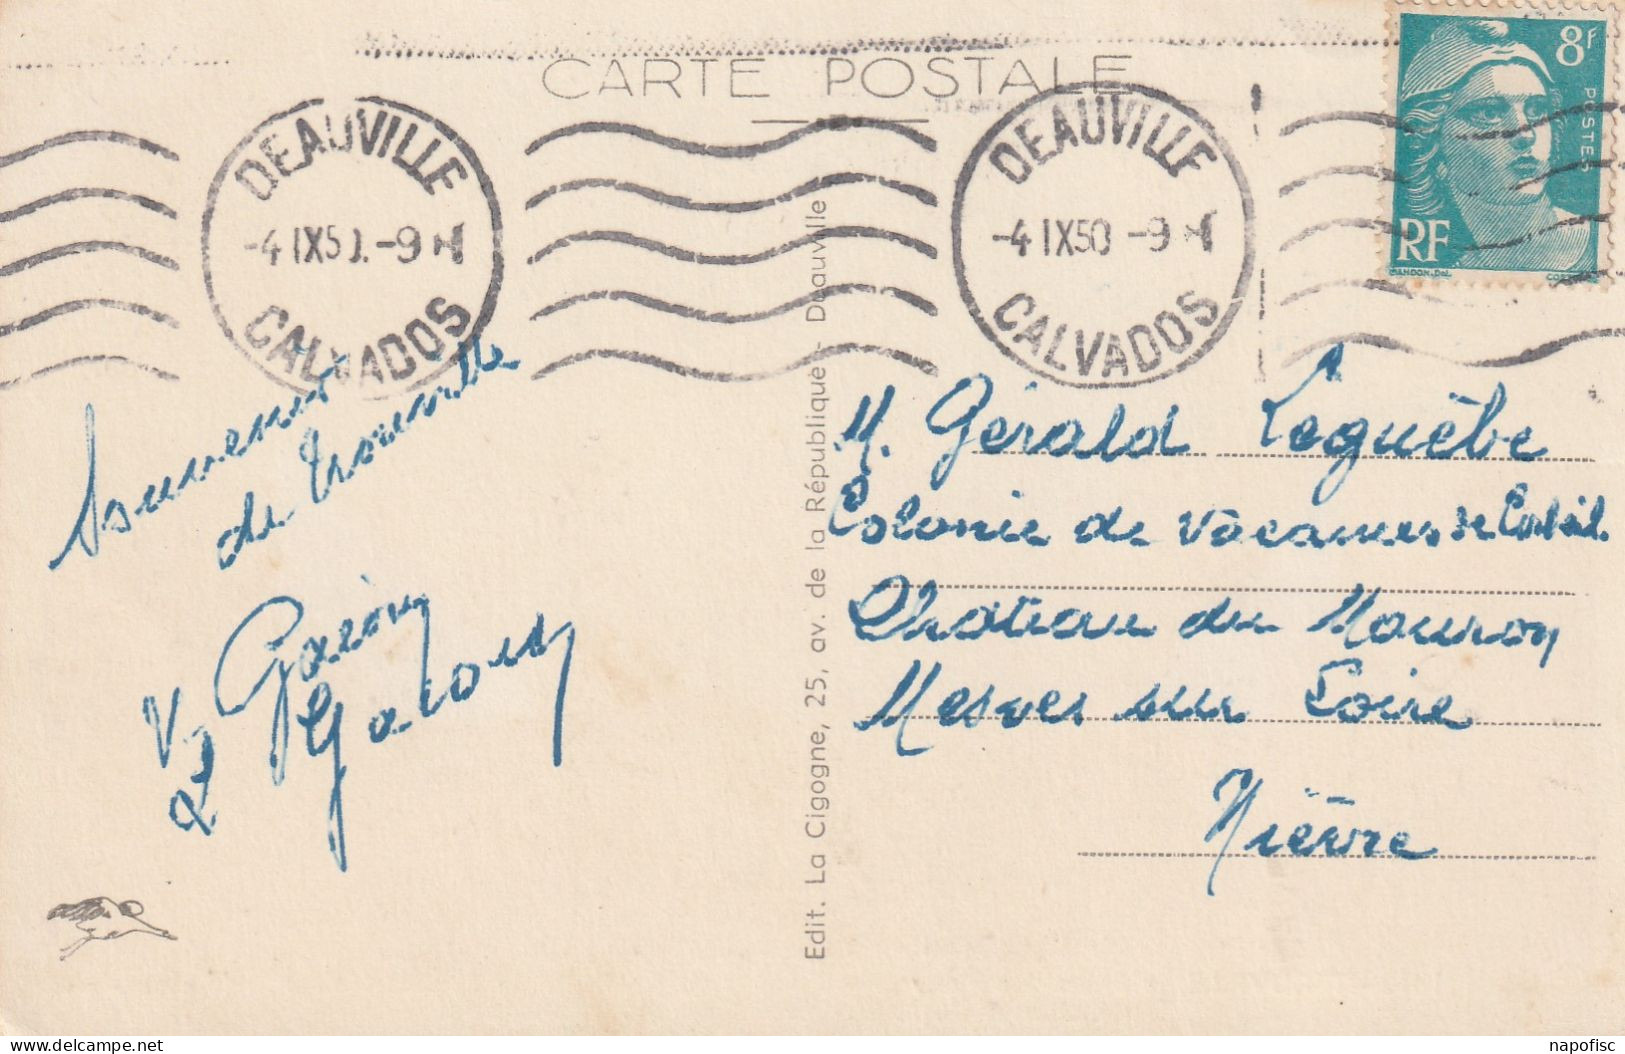 CARTE POSTALE
DEAUVILLE
-4 IX 50. -9 H
CALVADOS
DEAUVILLE
-4 IX 50 -9 H
CALVADOS
8F
POSTES
RF
GANDON. Del.
Souvenir
de Trouville
Edit. La Cigogne, 25, av. de la République - Deauville
M. Gérald Leguèbe
Colonie de Vacances de
Château du Mouron
Mesves sur Loire
Nièvre
Delcampe.net
napofisc